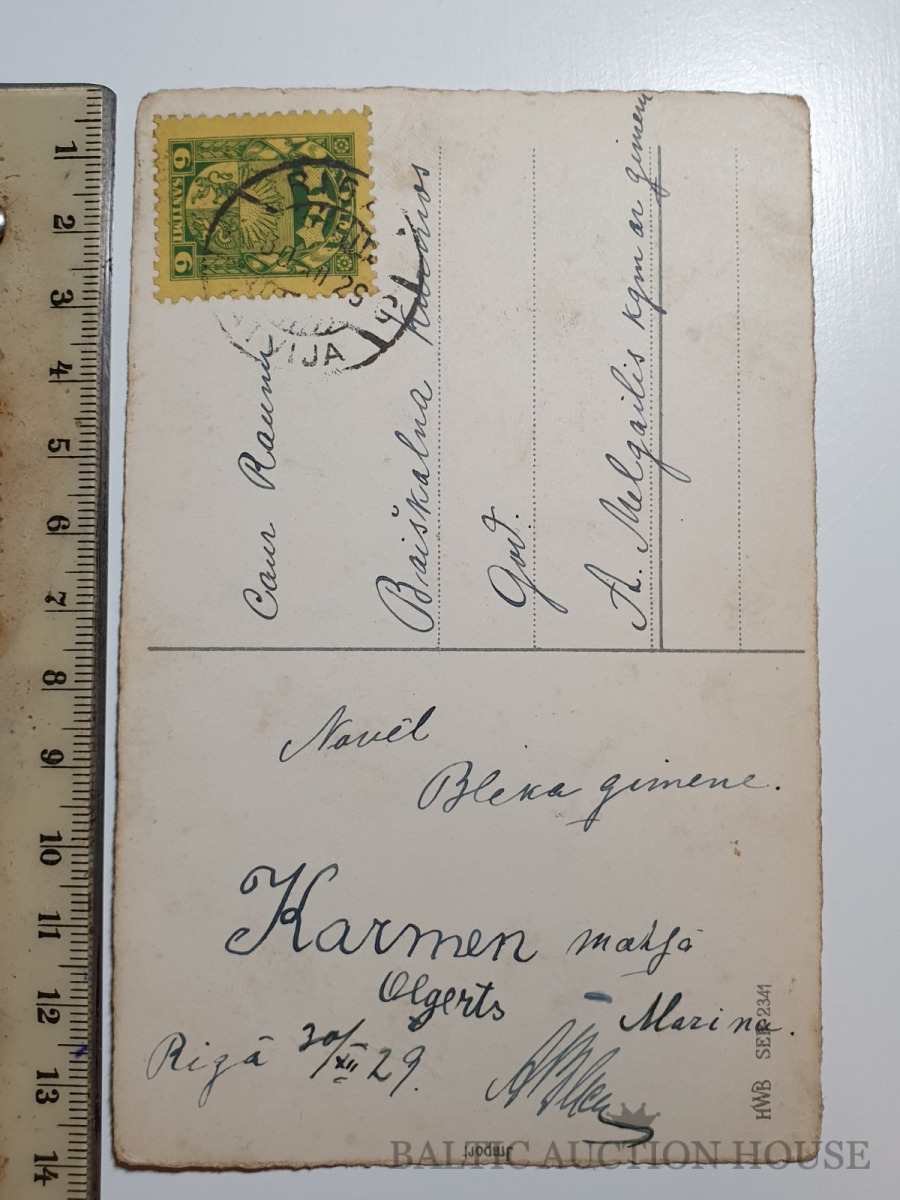 6 SANTIMI 6
LATVIJA
29
Caur Raunu
Baiškalna
God.
A. Melgailis kgm ar gimeni
Novēl
Bleka gimene.
Karmen
Olgerts
Marina.
Rigā 30/XII 29.
HWB SER 2341
Import
BALTIC AUCTION HOUSE
1
2
3
4
5
6
7
8
9
10
11
12
13
14